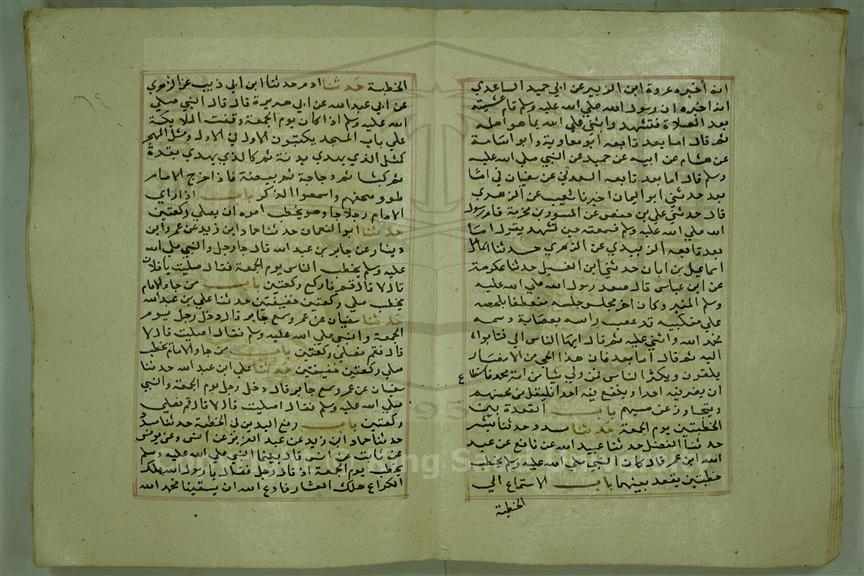 انه أخبره عروة ابن الزبير عن ابي حميد الساعدي
انه اخبره ان رسول الله صلي الله عليه وسلم قام عشية
بعد الصلاة فتشهد واثني علي الله بما هو اهله
ثم قال اما بعد تابعه ابو معاوية وابو اسامة
عن هشام عن ابيه عن حميد عن النبي صلي الله عليه
وسلم قال اما بعد تابعه العدني عن سفيان في اما
بعد حدثني ابو اليمان اخبرنا شعيب عن الزهري
قال حدثني علي بن حسين عن المسور بن مخرمة قام رسول
الله صلي الله عليه وسلم فسمعته حين تشهد يقول اما
بعد تابعه الزبيدي عن الزهري حدثنا
اسماعيل بن ابان حدثني ابن الغسيل حدثنا عكرمة
عن ابن عباس قال صعد رسول الله صلي الله عليه
وسلم المنبر وكان اخر مجلس جلسه متعطفا بملحفة
علي منكبيه قد عصب راسه بعصابة دسمه
فحمد الله واثني عليه ثم قال ايها الناس الي فثابوا
اليه ثم قال اما بعد فان هذا الحي من الانصار
يقلون ويكثر الناس فمن ولي شيا من امة محمد فاستطاع
ان يضر فيه احدا وينفع فيه احدا فليقبل من محسنهم
ويتجاوز عن مسيهم باب القعدة بين
الخطبتين يوم الجمعة حدثنا مسدد حدثنا بشر
حدثنا المفضل حدثنا عبيد الله عن نافع عن عبد
الله ابن عمر قال كان النبي صلي الله عليه وسلم يخطب
خطبتين يقعد بينهما باب الاستماع الي
الخطبة
الخطبة حدثنا ادم حدثنا ابن ابي ذيب عن الزهري
عن ابي عبد الله عن ابي هريرة قال قال النبي صلي
الله عليه وسلم اذا كان يوم الجمعة وقفت الملايكة
علي باب المسجد يكتبون الاول فالاول ومثل المهجر
كمثل الذي يهدي بدنة ثم كالذي يهدي بقدة
ثم كبشا ثم دجاجة ثم بيضة فاذا خرج الامام
طووا صحفهم واسمعوا الذكر باب اذا راي
الامام رجلا جا وهو يخطب امره ان يصلي ركعتين
حدثنا ابو النعمان حدثنا حماد ابن زيد عن عمرو ابن
دينار عن جابر بن عبد الله قال جا رجل والنبي صلي الله
عليه وسلم يخطب الناس يوم الجمعة فقال صليت يا فلان
قال لا قال قم فاركع ركعتين باب من جا والامام
يخطب صلي ركعتين خفيفتين حدثنا علي بن عبد الله
حدثنا سفيان عن عمرو سمع جابر قال دخل رجل يوم
الجمعة والنبي صلي الله عليه وسلم فقال اصليت قال لا
قال فقم فصلي ركعتين باب من جا والامام يخطب
صلي ركعتين خفيفتين حدثنا علي ابن عبد الله حدثنا
سفيان عن عمرو سمع جابر قال دخل رجل يوم الجمعة والنبي
صلي الله عليه وسلم فقال اصليت قال لا قال قم فصلي
ركعتين باب رفع اليدين في الخطبة حدثنا مسدد
حدثنا حماد ابن زيد عن عبد العزيز عن انس وعن يونس
عن ثابت عن انس قال بينما النبي صلي الله عليه وسلم
يخطب يوم الجمعة اذ قال رجل فقال يا رسول الله هلك
الكراع هلك الشا فادع الله ان يسقينا فمد